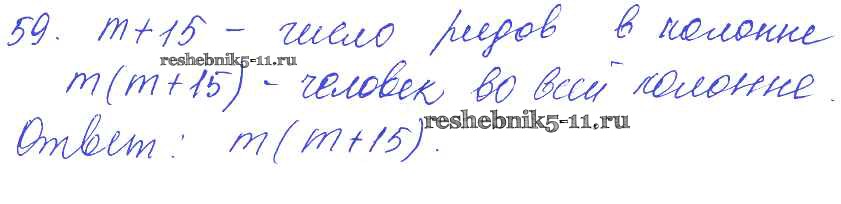 59. m+15 - число рядов в колонне
reshebnik5-11.ru
m(m+15) - человек во всей колонне.
reshebnik5-11.ru
Ответ: m(m+15).